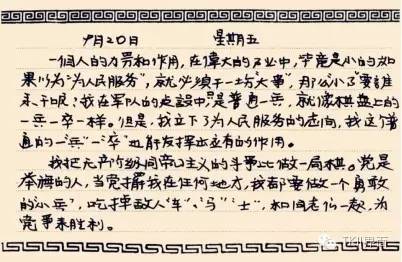 9月20日 星期五
一個人的力量和作用,在偉大的事业中,毕竟是小的。如
果以为"为人民服务",就必须干一場"大事",那么小事要誰
来干呢?我在军队的建設中只是普通一兵,就像棋盘上的
一兵一卒一样。但是,我立下了为人民服务的志向,我这个普
通的"兵""卒"也能发挥出应有的作用。
我把无产阶级同帝国主义的斗争比做一局棋。党是
的人,当党摆我在任何地方,我都要做一个勇敢
的"小兵",吃掉敌人"车"、"马""士",和同志们一起,为
党争来胜利。